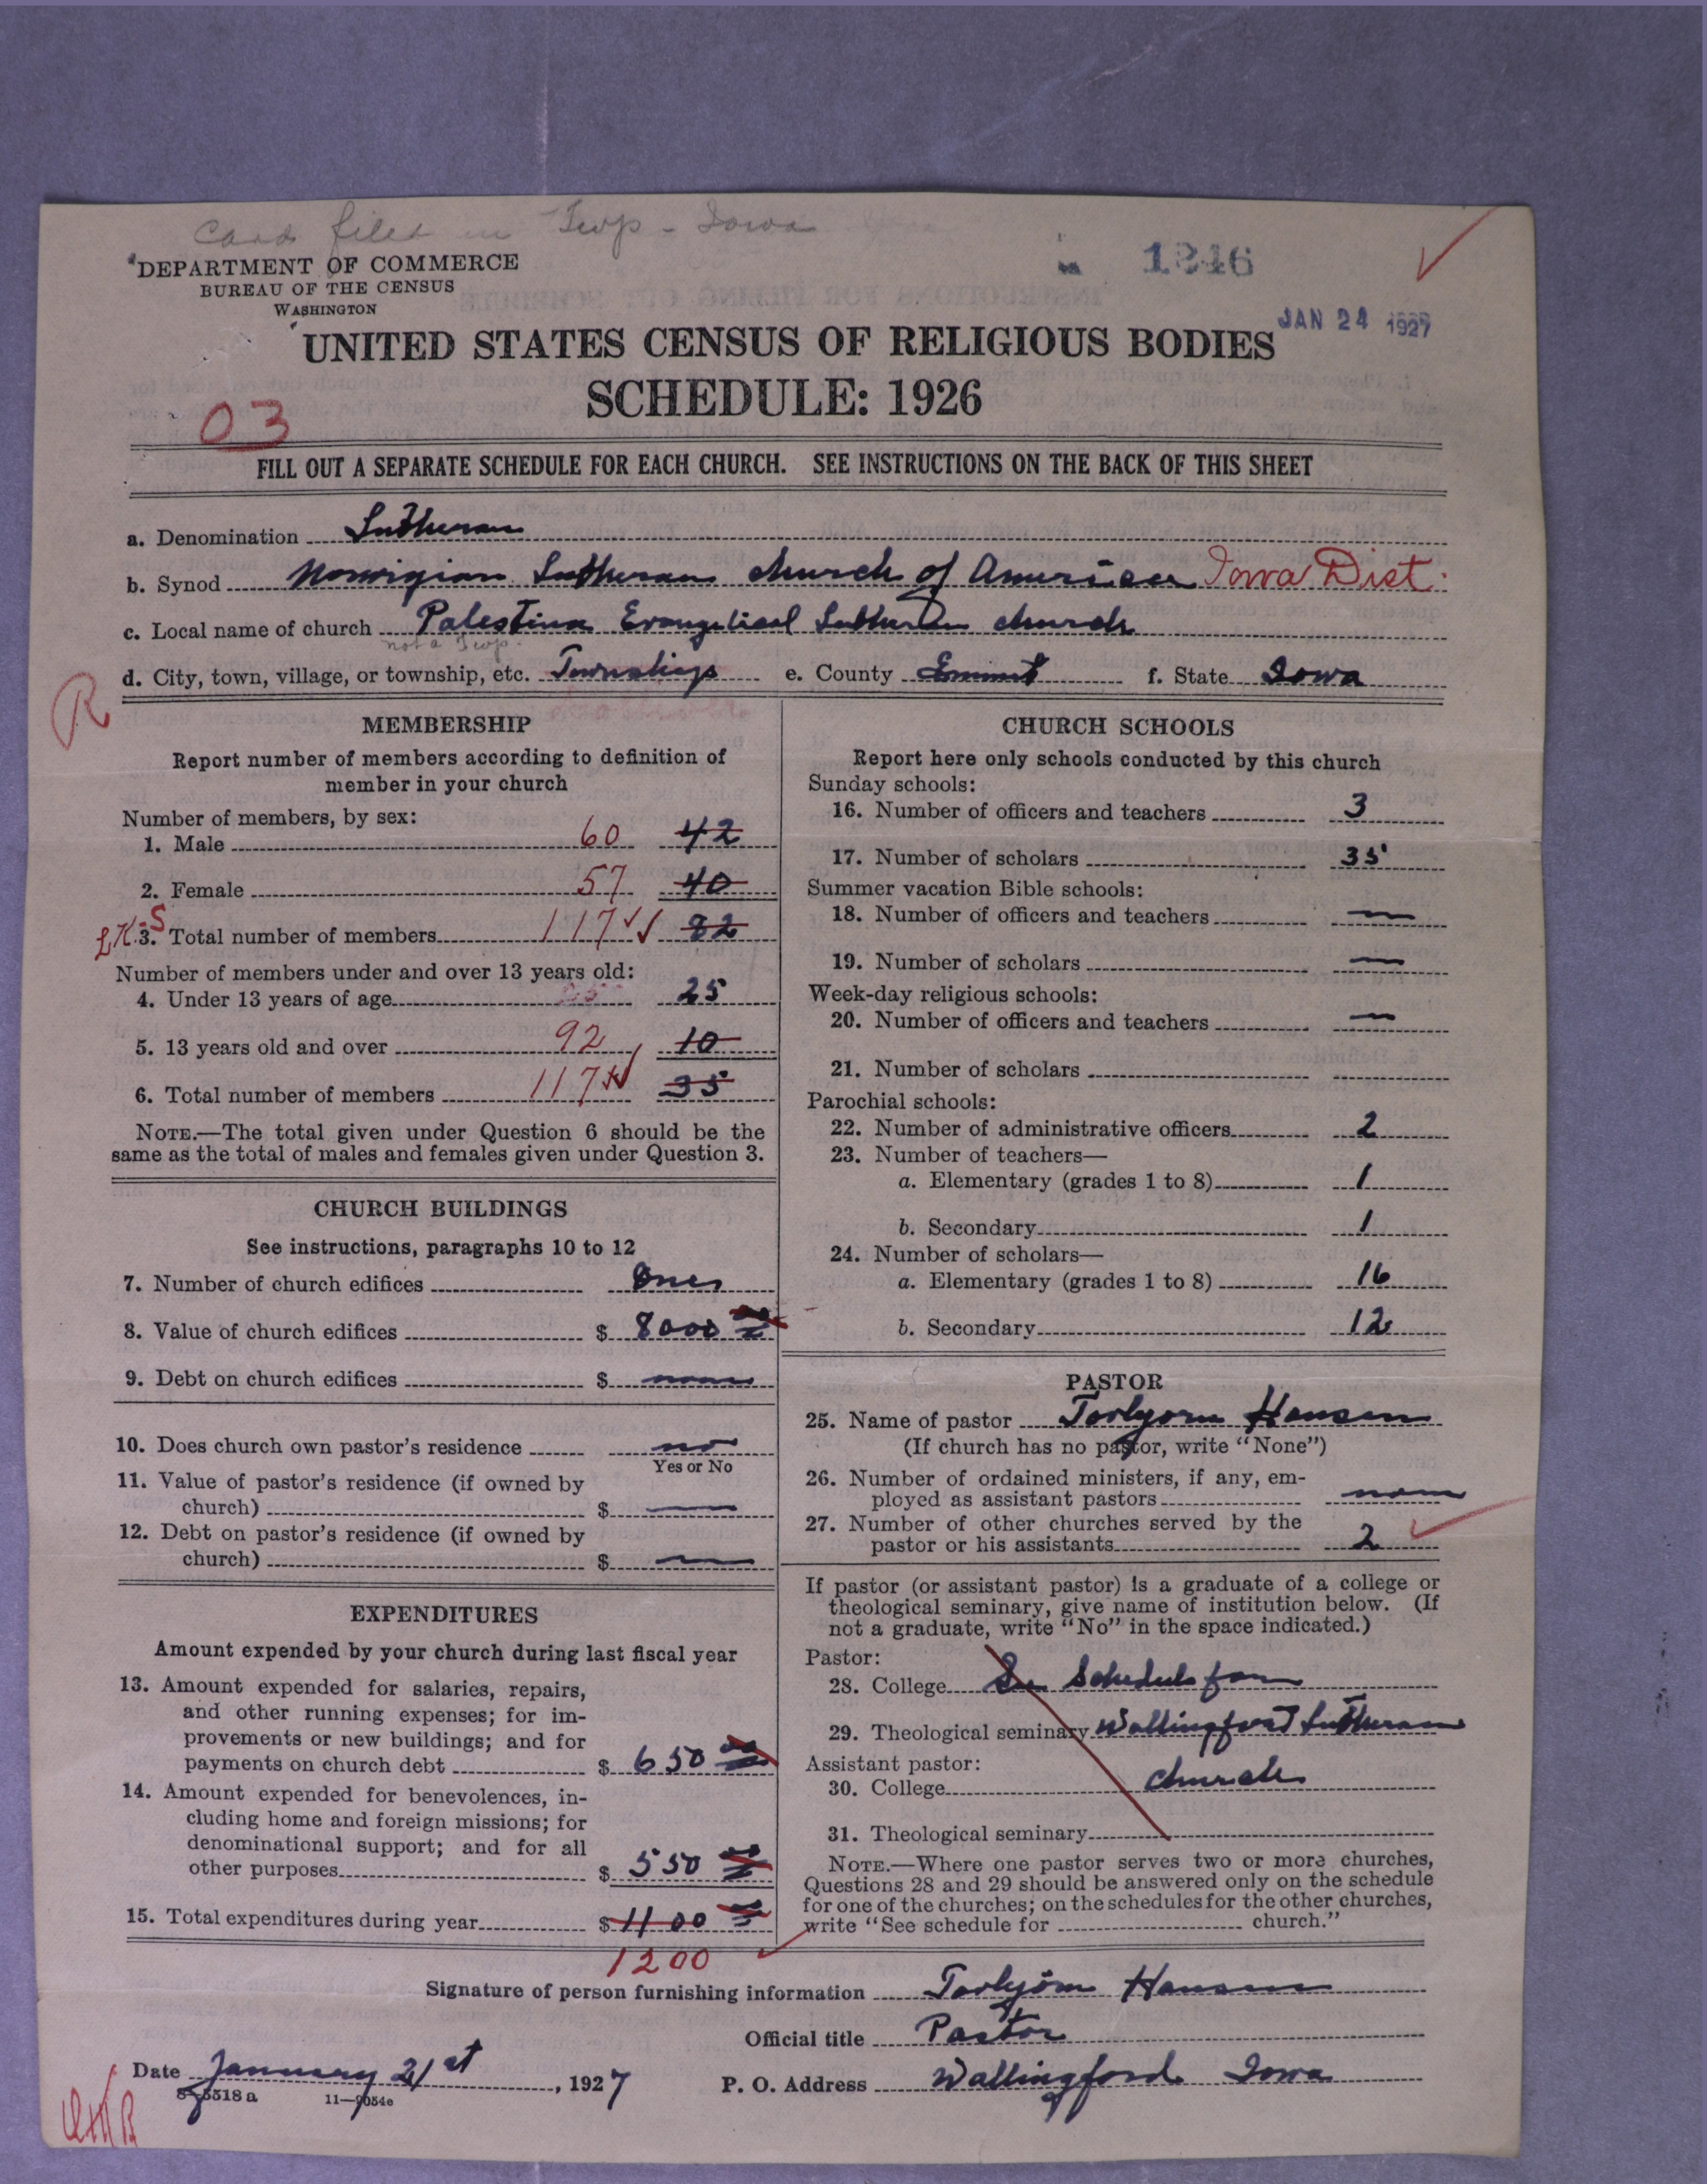 Card filed in Twp - Iowa
DEPARTMENT OF COMMERCE
BUREAU OF THE CENSUS
WASHINGTON
1246
JAN 24 1927
UNITED STATES CENSUS OF RELIGIOUS BODIES
SCHEDULE: 1926
03
FILL OUT A SEPARATE SCHEDULE FOR EACH CHURCH. SEE INSTRUCTIONS ON THE BACK OF THIS SHEET
a. Denomination Lutheran
b. Synod Norwigian Lutheran church of America Iowa Dist.
c. Local name of church Palestina Evangelical Lutheran church
not a Twp.
d. City, town, village, or township, etc. Township e. County Emmet f. State Iowa
R
MEMBERSHIP
Report number of members according to definition of
member in your church
Number of members, by sex:
1. Male 60 42
2. Female 57 40
3. Total number of members 117 82
Number of members under and over 13 years old:
4. Under 13 years of age 25 25
5. 13 years old and over 92 10
6. Total number of members 117 35
NOTE.—The total given under Question 6 should be the
same as the total of males and females given under Question 3.
CHURCH BUILDINGS
See instructions, paragraphs 10 to 12
7. Number of church edifices One
8. Value of church edifices $ 8000
9. Debt on church edifices $ none
10. Does church own pastor's residence no
Yes or No
11. Value of pastor's residence (if owned by
church) $ —
12. Debt on pastor's residence (if owned by
church) $ —
EXPENDITURES
Amount expended by your church during last fiscal year
13. Amount expended for salaries, repairs,
and other running expenses; for im-
provements or new buildings; and for
payments on church debt $ 650
14. Amount expended for benevolences, in-
cluding home and foreign missions; for
denominational support; and for all
other purposes $ 550
15. Total expenditures during year $ 1100
1200
CHURCH SCHOOLS
Report here only schools conducted by this church
Sunday schools:
16. Number of officers and teachers 3
17. Number of scholars 35
Summer vacation Bible schools:
18. Number of officers and teachers —
19. Number of scholars —
Week-day religious schools:
20. Number of officers and teachers —
21. Number of scholars
Parochial schools:
22. Number of administrative officers 2
23. Number of teachers—
a. Elementary (grades 1 to 8) 1
b. Secondary 1
24. Number of scholars—
a. Elementary (grades 1 to 8) 16
b. Secondary 12
PASTOR
25. Name of pastor Torbjorn Hansen
(If church has no pastor, write "None")
26. Number of ordained ministers, if any, em-
ployed as assistant pastors none
27. Number of other churches served by the
pastor or his assistants 2
If pastor (or assistant pastor) is a graduate of a college or
theological seminary, give name of institution below. (If
not a graduate, write "No" in the space indicated.)
Pastor:
28. College See Schedule for
29. Theological seminary Wallingford Lutheran
Assistant pastor:
30. College church
31. Theological seminary
NOTE.—Where one pastor serves two or more churches,
Questions 28 and 29 should be answered only on the schedule
for one of the churches; on the schedules for the other churches,
write "See schedule for church."
Signature of person furnishing information Torbjörn Hansen
Official title Pastor
Date January 21st, 1927 P. O. Address Wallingford Iowa
8-5518 a 11—9054e